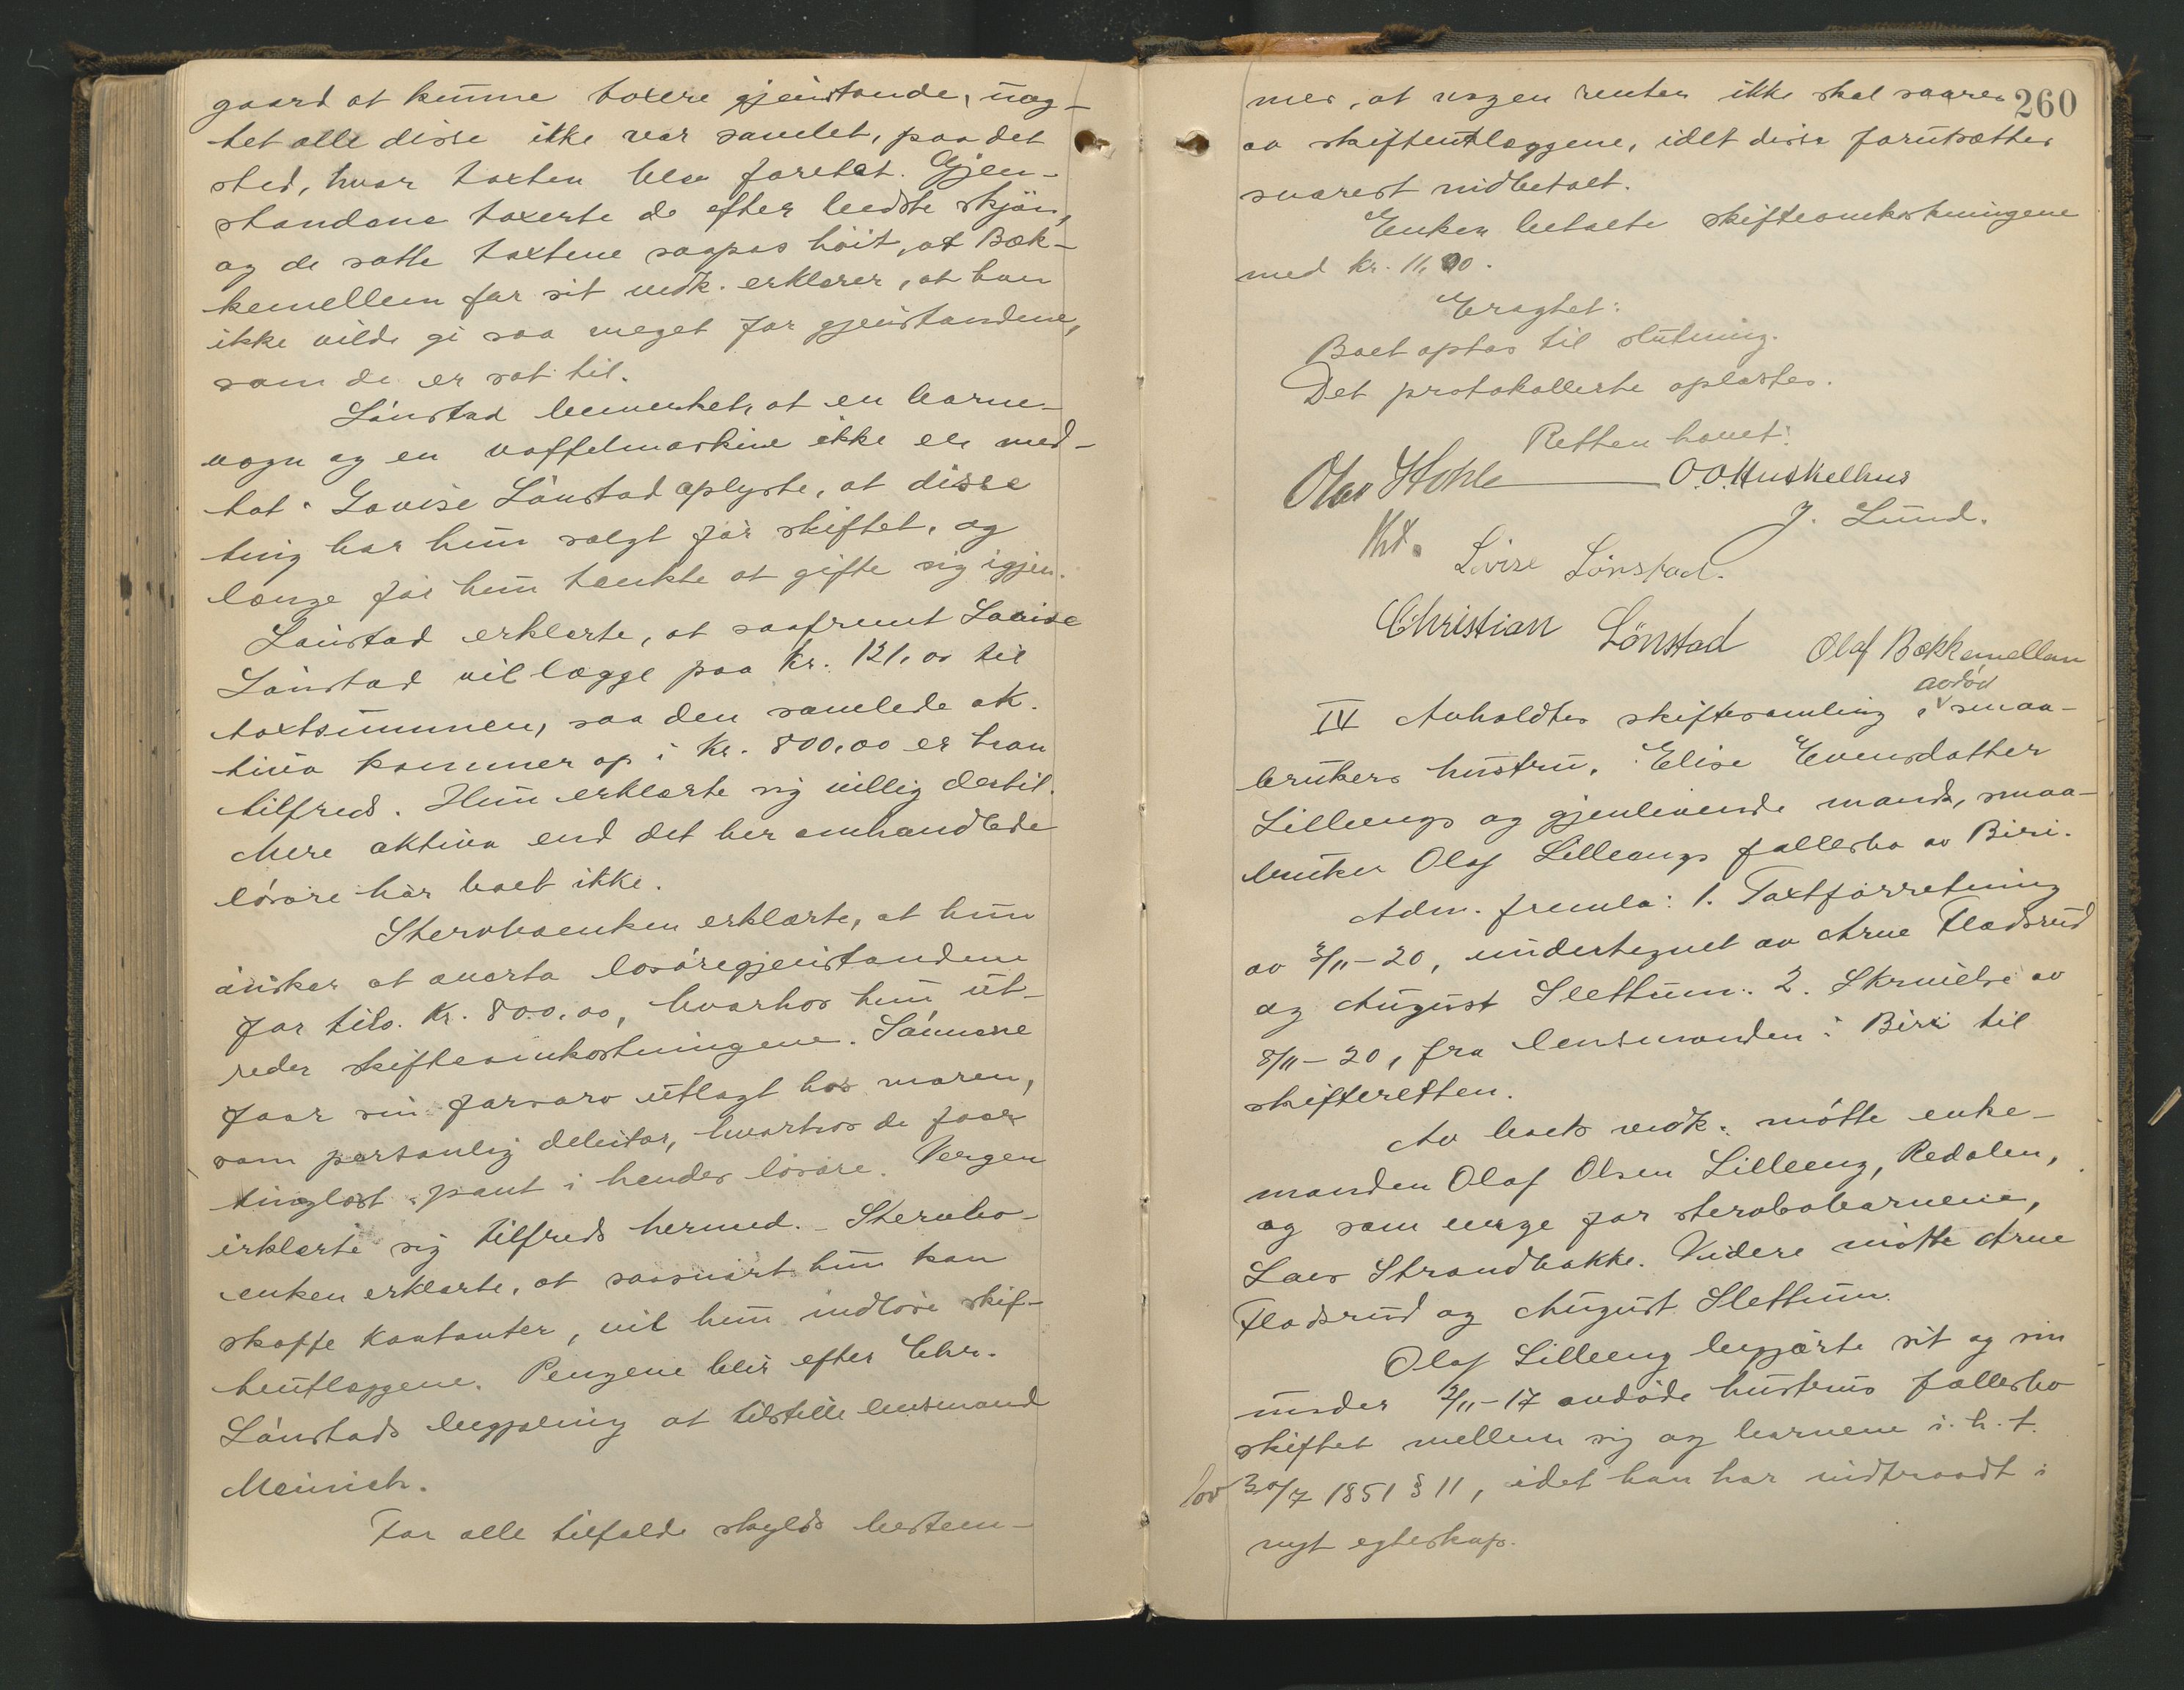 gaard at kunne taxere gjenstande, uag-
tet alle disse ikke var samlet, paa det
sted, hvor taxten blev foretat. Gjen-
standene taxerte de efter bedste skjøn,
og de satte taxtene saapas høit, at Bæk-
kemellem for sit vedk. erklærer, at han
ikke vilde gi saa meget for gjenstandene,
som de er sat til.
Lønstad bemerket, at en barne-
vogn og en vaffelmaskine ikke er med-
tat. Lovise Lønstad oplyste, at disse
ting har hun solgt før skiftet, og
længe før hun tænkte at gifte sig igjen.
Lønstad erklærte, at saafremt Lovise
Lønstad vil lægge paa kr. 121,00 til
taxtsummen, saa den samlede ak-
tiva kommer op i kr. 800,00 er han
tilfreds. Hun erklærte sig villig dertil.
Mere aktiva end det her omhandlede
løsøre har boet ikke.
Stervboenken erklærte, at hun
ønsker at overta løsøregjenstandene
for tils. kr. 800,00, hvorhos hun ut-
reder skifteomkostningene. Sønnene
faar sin farsarv utlagt hos moren,
som personlig debitor, hvorhos de faar
tinglæst pant i hendes løsøre. Vergen
erklærte sig tilfreds hermed. Stervbo-
enken erklærte, at saasnart hun kan
skaffe kontanter, vil hun indløse skif-
teutlæggene. Pengene blir efter Chr.
Lønstads begjæring at tilstille lensmand
Meinich.
For alle tilfælde skyld bestem-
260
mes, at nogen renter ikke skal svares
av skifteutlæggene, idet disse forutsættes
snarest indbetalt.
Enken betalte skifteomkostningene
med kr. 11,00.
Eragtet:
Boet optas til slutning.
Det protokollerte oplæstes.
Retten hævet:
Olav Stohle O.O. Huskelhus
Kst. J. Lund.
Lovise Lønstad.
Christian Lønstad Olaf Bækkemellem
avdød
IV Avholdtes skiftesamling i smaa-
brukers hustru, Elise Evensdatter
Lilleengs og gjenlevende mands, smaa-
bruker Olaf Lilleengs fællesbo av Biri.
Adm. fremla: 1. Taxtforretning
av 3/11-20, undertegnet av Arne Fladsrud
og August Slettum. 2. Skrivelse av
8/11-20, fra lensmanden i Biri til
skifteretten.
Av boets vedk. møtte enke-
manden Olaf Olsen Lilleeng, Redalen,
og som verge for stervbobarnene,
Lars Strandbakke. Videre møtte Arne
Fladsrud og August Slettum.
Olaf Lilleeng begjærte sit og sin
under 2/11-17 avdøde hustrus fællesbo
skiftet mellem sig og barnene i. h. t.
lov 30/7 1851 § 11, idet han har indtraadt i
nyt egteskap.